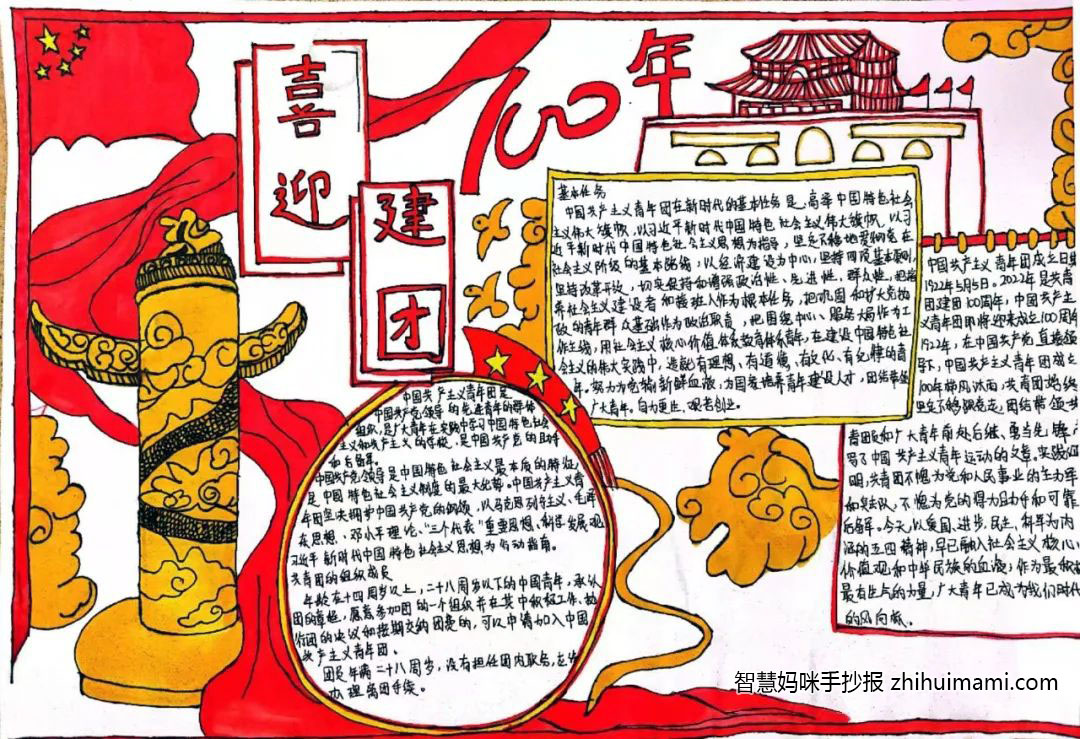 喜迎
建团
100年
基本任务
中国共产主义青年团在新时代的基本任务是，高举中国特色社会
主义伟大旗帜，以习近平新时代中国特色社会主义伟大旗帜，以习
近平新时代中国特色社会主义思想为指导，坚定不移地贯彻党在
社会主义阶级的基本路线，以经济建设为中心，坚持四项基本原则，
坚持改革开放，切实保持和增强政治性、先进性、群众性，把培
养社会主义建设者和接班人作为根本任务，把巩固和扩大党执
政的青年群众基础作为政治职责，把围绕中心、服务大局作为工
作主线，用社会主义核心价值体系教育青年，在建设中国特色社
会主义的伟大实践中，造就有理想、有道德、有文化、有纪律的青
年，努力为党输新鲜血液，为国家培养青年建设人才，团结带领
广大青年，自力更生、艰苦创业。
中国共产主义青年团是
中国共产党领导的先进青年的群体
组织，是广大青年在实践中学习中国特色社会
主义和共产主义的学校，是中国共产党的助手
和后备军。
中国共产党领导是中国特色社会主义最本质的特征，
是中国特色社会主义制度的最大优势。中国共产主义青
年团坚决拥护中国共产党的纲领，以马克思列宁主义、毛泽
东思想、邓小平理论、“三个代表”重要思想、科学发展观、
习近平新时代中国特色社会主义思想为行动指南。
共青团的组织成员
年龄在十四周岁以上，二十八周岁以下的中国青年，承认
团的章程，愿意参加团的一个组织并在其中积极工作、执
行团的决议和按期交纳团费的，可以申请加入中国
共产主义青年团。
团员年满二十八周岁，没有担任团内职务，应该
办理离团手续。
中国共产主义青年团成立日期
1922年5月5日。2022年是共青
团建团100周年，中国共产主
义青年团即将迎来成立100周年
1922年，在中国共产党直接领
下，中国共产主义青年团成立
100年栉风沐雨，共青团始终
坚定不移跟党走，团结带领共
青团员和广大青年前赴后继、勇当先锋，
写了中国共产主义青年运动的文章。实践证
明，共青团不愧为党和人民事业的生力军
和突击队，不愧为党的得力助手和可靠
后备军。今天，以爱国、进步、民主、科学为内
涵的五四精神，早已融入社会主义核心
价值观和中华民族的血液；作为最积极
最有生气的力量，广大青年已成为我们时代
的风向标。
智慧妈咪手抄报 zhihuimami.com